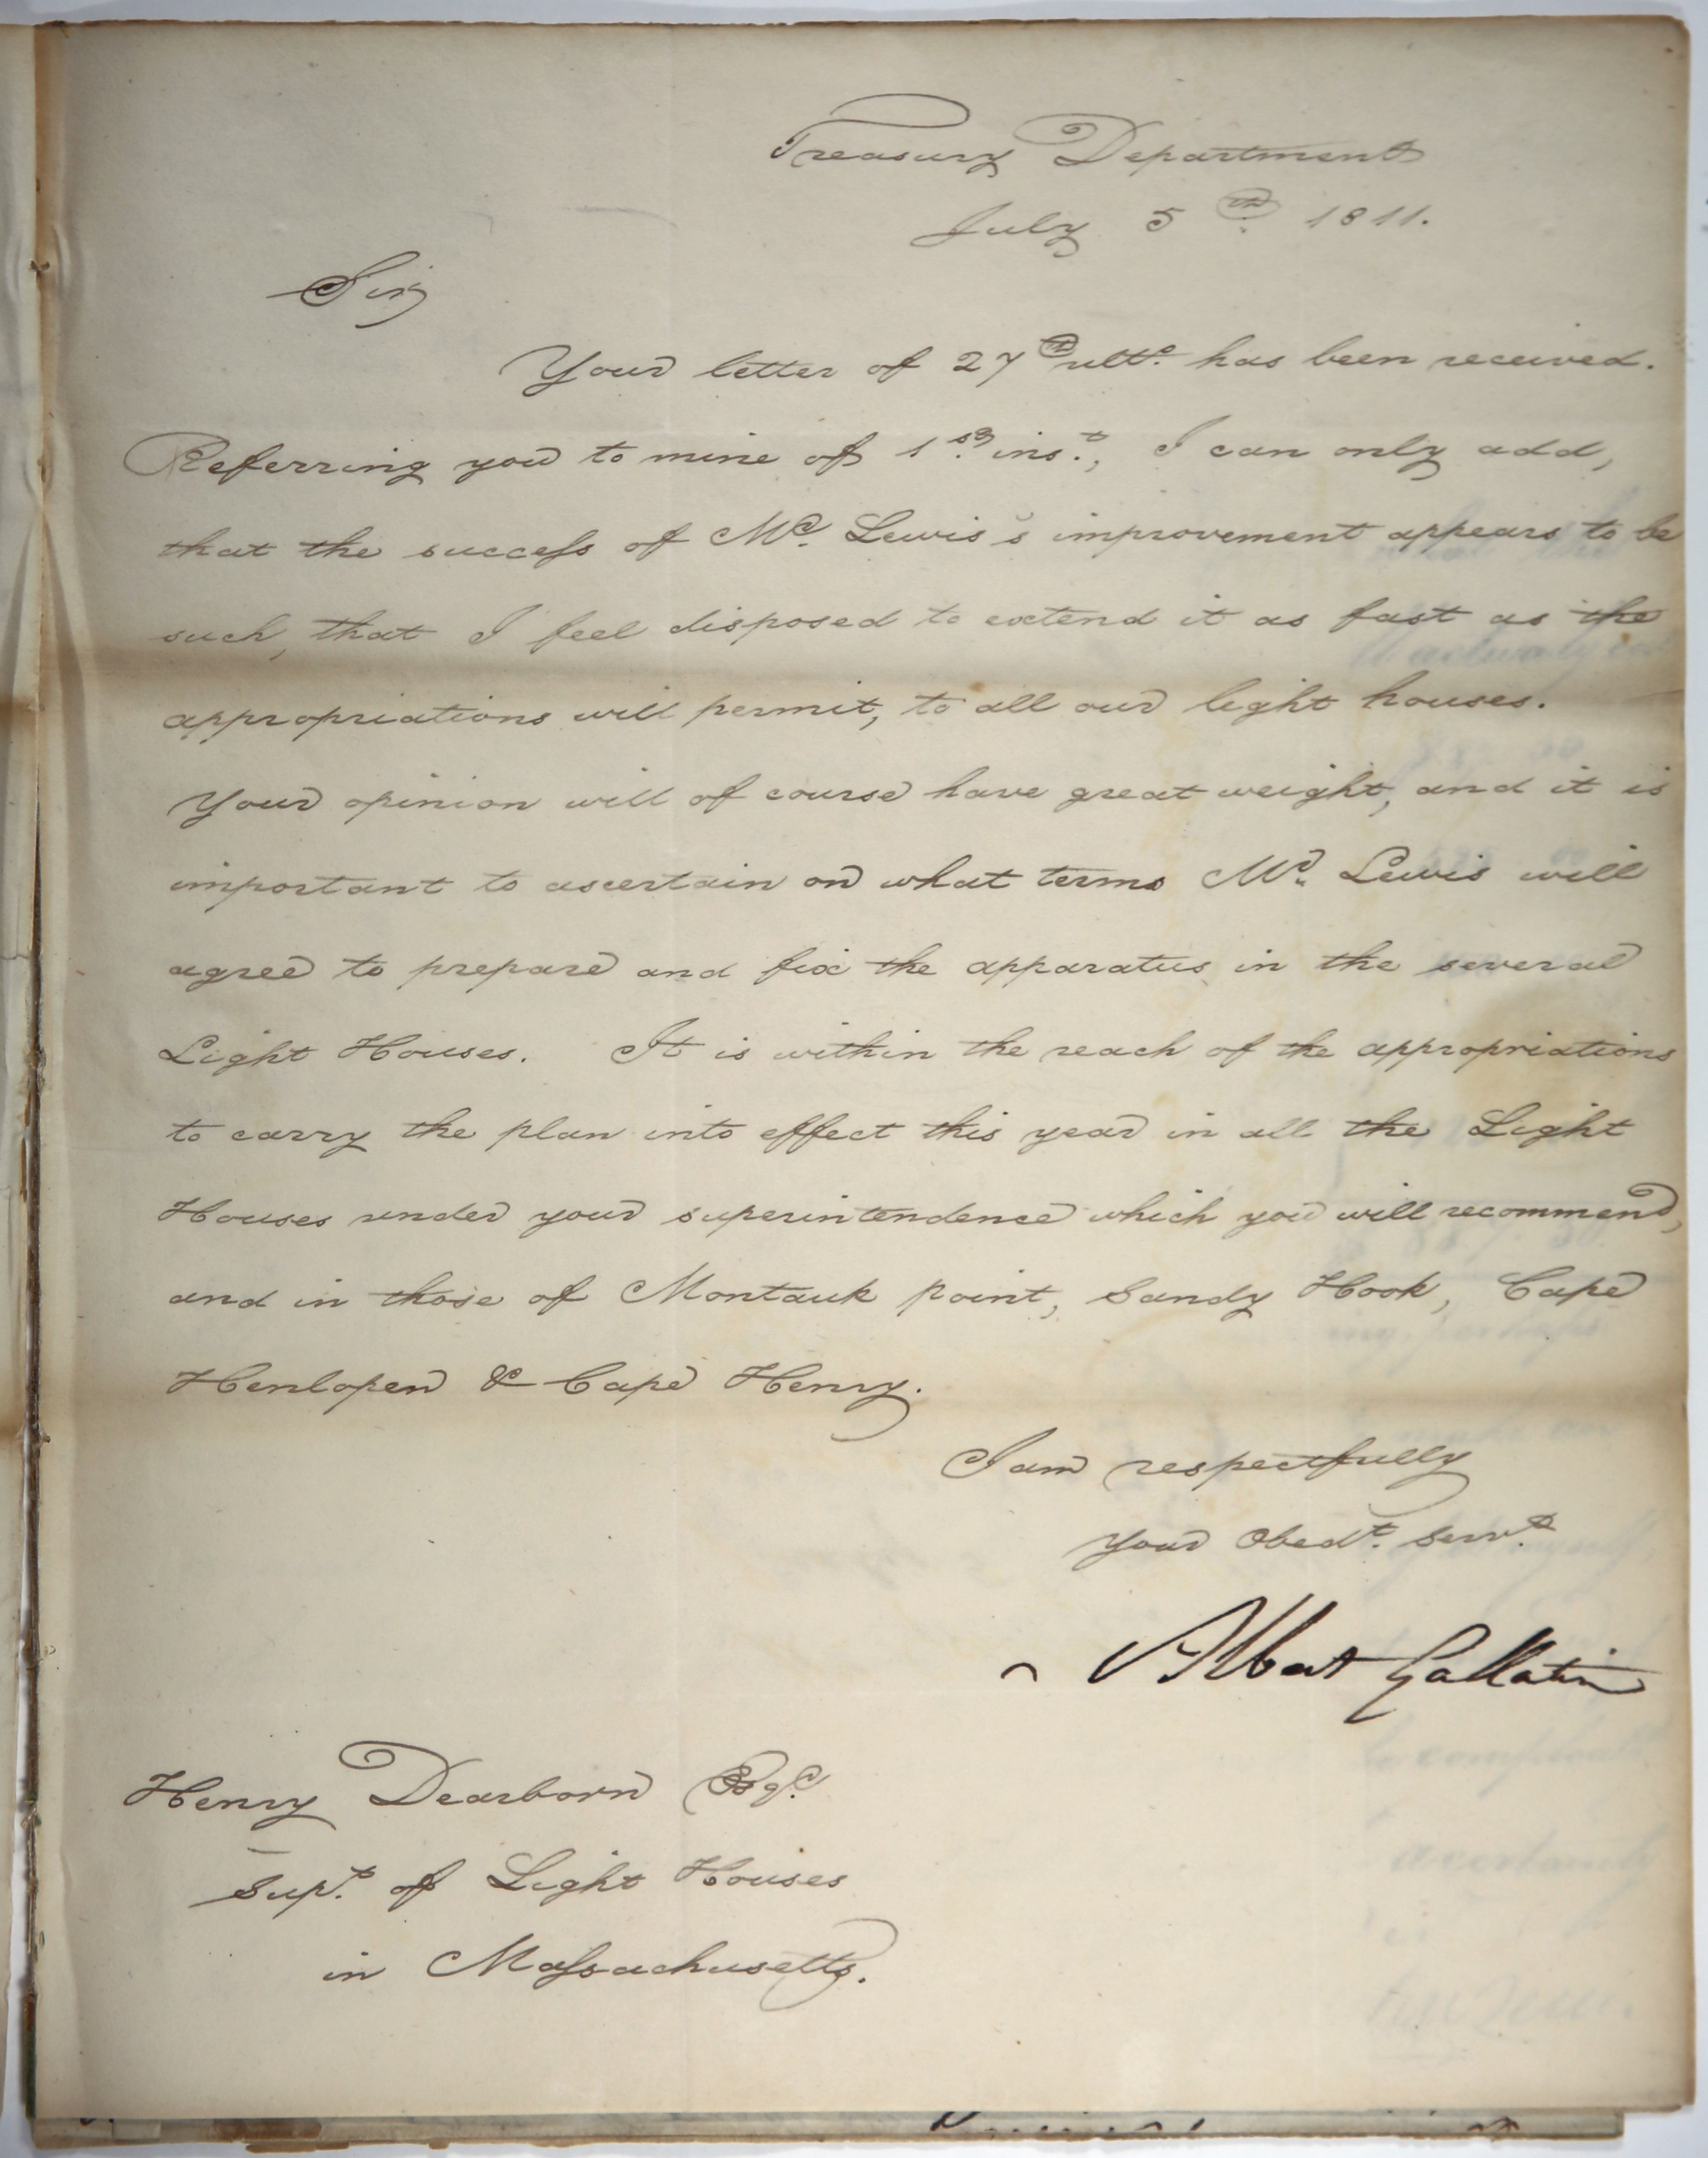 Treasury Department
July 5th 1811.
Sir,
Your letter of 27th ulto. has been received.
Referring you to mine of 1st. inst., I can only add,
that the success of Mr. Lewis's improvement appears to be
such, that I feel disposed to extend it as fast as the
appropriations will permit, to all our light houses.
Your opinion will of course have great weight, and it is
important to ascertain on what terms Mr. Lewis will
agree to prepare and fix the apparatus in the several
Light Houses. It is within the reach of the appropriations
to carry the plan into effect this year in all the Light
Houses under your superintendence which you will recommend,
and in those of Montauk point, Sandy Hook, Cape
Henlopen & Cape Henry.
I am respectfully
your Obedt. Servt.
Albert Gallatin
Henry Dearborn Esqr.
Supt. of Light Houses
in Massachusetts.